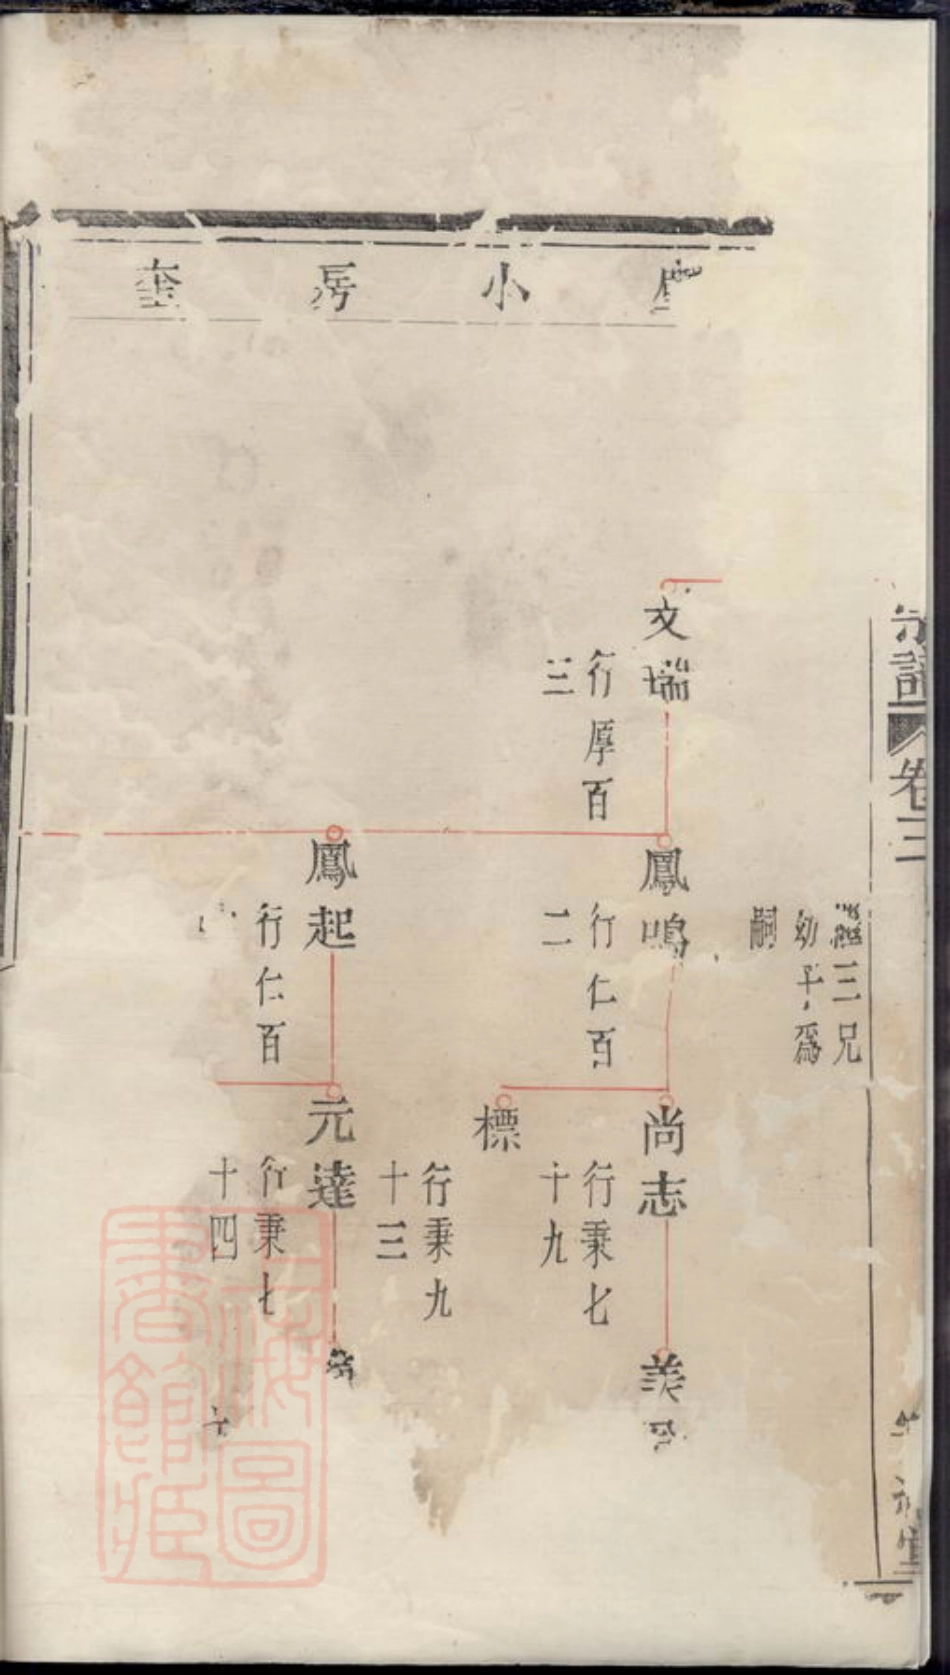 宗譜
卷三
三兄
幼子爲
嗣
小房奎
文瑞
行厚百
三
鳳鳴
行仁百
二
尚志
行秉七
十九
標
行秉九
十三
鳳起
行仁百
元達
行秉七
十四
上海圖
書館藏